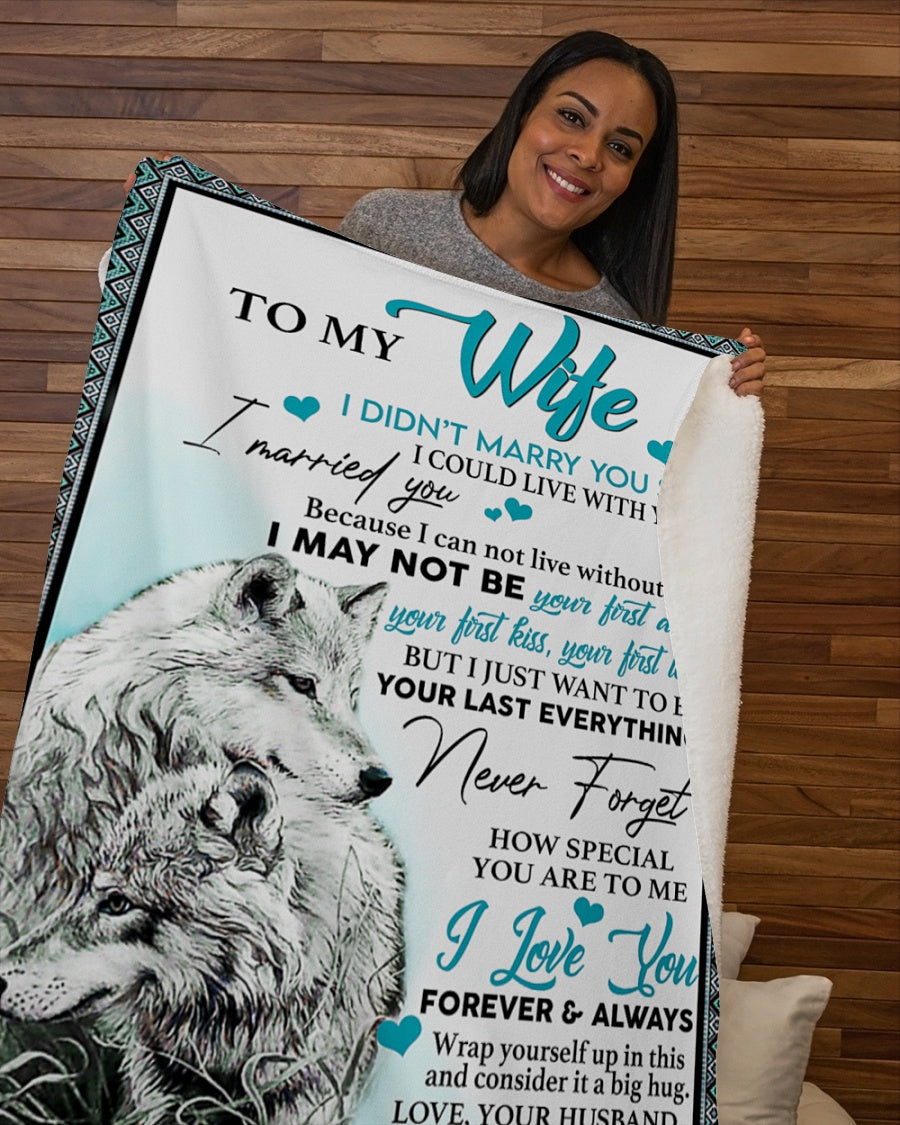 TO MY Wife
I DIDN'T MARRY YOU
I COULD LIVE WITH
I married you
Because I can not live without
I MAY NOT BE your first
your first kiss, your first
BUT I JUST WANT TO
YOUR LAST EVERYTHIN
Never Forget
HOW SPECIAL
YOU ARE TO ME
I Love You
FOREVER & ALWAYS
Wrap yourself up in this
and consider it a big hug.
LOVE, YOUR HUSBAND